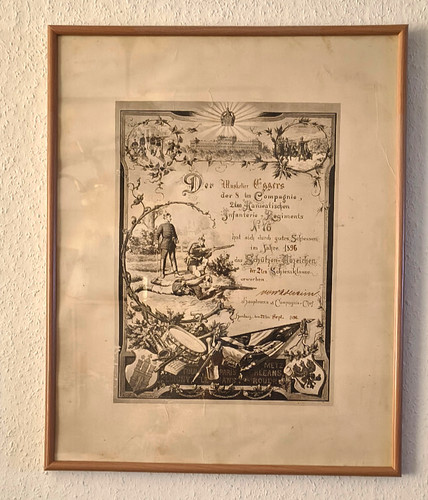 Der Musketier Eggers
der 8 ten Compagnie,
2ten Hanseatischen
Infanterie-Regiments
No 76
hat sich durch gutes Schiessen
im Jahre 1896
das Schützen-Abzeichen
der 2ten Schiessklasse
erworben
Hauptmann u. Compagnie-Chef
Hamburg, den Sept. 1896
METZ
PARIS ORLEANS
ROUEN